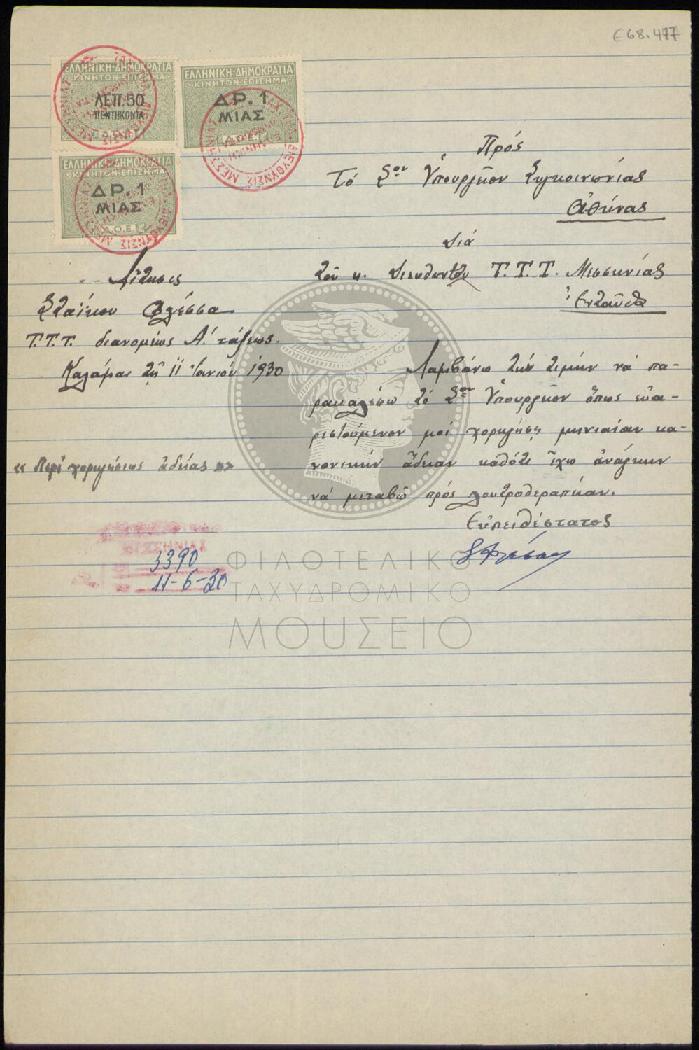 Ε68.477
ΕΛΛΗΝΙΚΗ·ΔΗΜΟΚΡΑΤΙΑ
ΚΙΝΗΤΟΝ·ΕΠΙΣΗΜΑ
ΛΕΠ.50
ΠΕΝΤΗΚΟΝΤΑ
ΕΛΛΗΝΙΚΗ·ΔΗΜΟΚΡΑΤΙΑ
ΚΙΝΗΤΟΝ·ΕΠΙΣΗΜΑ
ΔΡ.1
ΜΙΑΣ
ΕΛΛΗΝΙΚΗ·ΔΗΜΟΚΡΑΤΙΑ
ΚΙΝΗΤΟΝ·ΕΠΙΣΗΜΑ
ΔΡ.1
ΜΙΑΣ
Πρός
Τό Σον Ὑπουργεῖον Συγκοινωνίας
Ἀθήνας
Διά
Τοῦ κ. Διευθυντοῦ Τ.Τ.Τ. Μεσσηνίας
Ἐνταῦθα
Αἴτησις
Τ.Τ.Τ. διανομέως Α΄ τάξεως.
Καλάμαι τῇ 11 Ἰουνίου 1930
« Περί χορηγήσεως ἀδείας »
Λαμβάνω τήν τιμήν νά πα-
ρακαλέσω τό Σον Ὑπουργεῖον ὅπως εὐα-
ρεστούμενον μοί χορηγήσῃ μηνιαίαν κα-
νονικήν ἄδειαν καθότι ἔχω ἀνάγκην
νά μεταβῶ πρός λουτροθεραπείαν.
Εὐπειθέστατος
ΜΕΣΣΗΝΙΑΣ
3390
11-6-30
ΦΙΛΟΤΕΛΙΚΟ
ΤΑΧΥΔΡΟΜΙΚΟ
ΜΟΥΣΕΙΟ